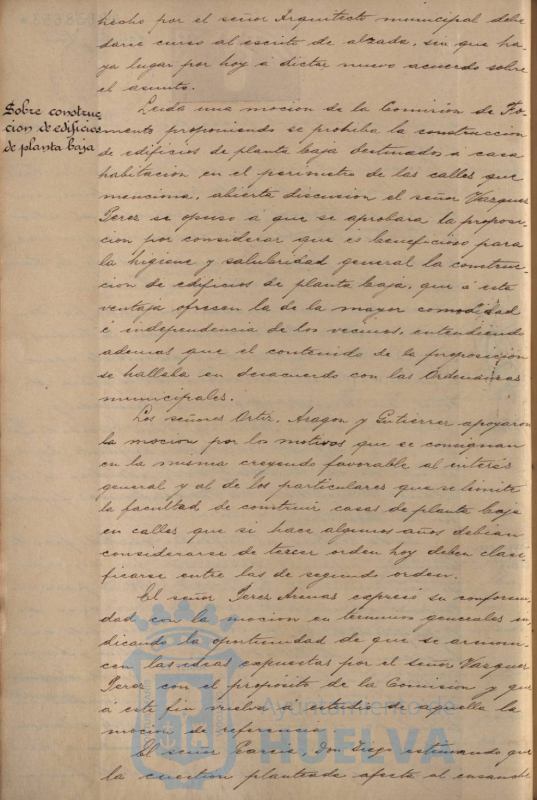 hecho por el señor Arquitecto municipal debe
darse curso al escrito de alzada, sin que ha-
ya lugar por hoy á dictar nuevo acuerdo sobre
el asunto.
Sobre construc
cion de edificios
de planta baja
Leida una mocion de la Comision de Fo-
mento proponiendo se prohiba la construccion
de edificios de planta baja destinados á casa
habitacion en el perimetro de las calles que
menciona, abierta discusion el señor Vazquez
Perez se opuso á que se aprobara la proposi-
cion por considerar que es beneficioso para
la higiene y salubridad general la construc-
cion de edificios de planta baja, que á esta
ventaja ofrecen la de la mayor comodidad
é independencia de los vecinos, entendiendo
ademas que el contenido de la proposicion
se hallaba en desacuerdo con las Ordenanzas
municipales.
Los señores Ortiz, Aragon y Gutierrez apoyaron
la mocion por los motivos que se consignan
en la misma creyendo favorable al interés
general y al de los particulares que se limite
la facultad de construir casas de planta baja
en calles que si hace algunos años debian
considerarse de tercer orden hoy deben clasi-
ficarse entre las de segundo orden.
El señor Perez Arenas expresó su conformi-
dad con la mocion en terminos generales in-
dicando la oportunidad de que se armoni-
cen las ideas expuestas por el señor Vazquez
Perez con el propósito de la Comision y que
á este fin vuelva á estudio de aquella la
mocion de referencia.
El señor Garcia, Don Diego estimando que
la cuestion planteada afecta al ensanche
Ayuntamiento de
HUELVA